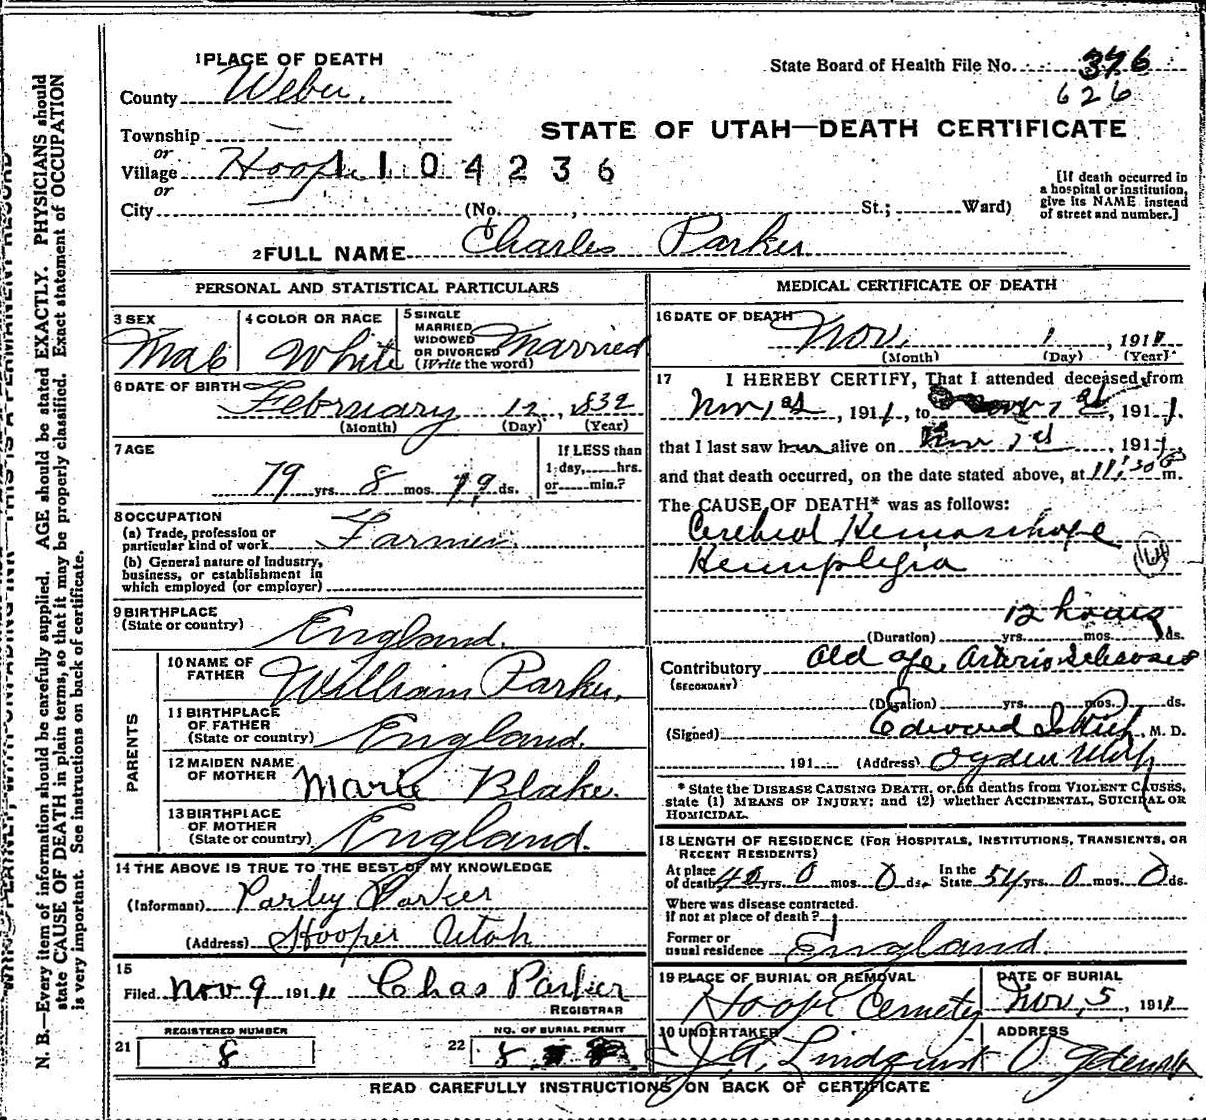 1 PLACE OF DEATH
County Weber.
State Board of Health File No. 376
626
STATE OF UTAH—DEATH CERTIFICATE
Township —
or
Village Hooper 1104236
or
City (No. , St.; Ward)
[If death occurred in
a hospital or institution,
give its NAME instead
of street and number.]
2 FULL NAME Charles Parker
PERSONAL AND STATISTICAL PARTICULARS
3 SEX
Male
4 COLOR OR RACE
White
5 SINGLE
MARRIED
WIDOWED
OR DIVORCED
(Write the word)
Married
6 DATE OF BIRTH
February 12, 1832
(Month) (Day) (Year)
7 AGE
79 yrs. 8 mos. 19 ds.
If LESS than
1 day, hrs.
or min.?
8 OCCUPATION
(a) Trade, profession or
particular kind of work Farmer
(b) General nature of Industry,
business, or establishment in
which employed (or employer)
9 BIRTHPLACE
(State or country)
England.
PARENTS
10 NAME OF
FATHER
William Parker.
11 BIRTHPLACE
OF FATHER
(State or country)
England.
12 MAIDEN NAME
OF MOTHER
Marie Blake.
13 BIRTHPLACE
OF MOTHER
(State or country)
England.
14 THE ABOVE IS TRUE TO THE BEST OF MY KNOWLEDGE
(Informant) Parley Parker
(Address) Hooper Utah
15
Filed Nov 9 1911 Chas Parker
REGISTRAR
REGISTERED NUMBER
21 8
NO. OF BURIAL PERMIT
22 8
MEDICAL CERTIFICATE OF DEATH
16 DATE OF DEATH
Nov. 1, 1911
(Month) (Day) (Year)
17 I HEREBY CERTIFY, That I attended deceased from
Nov 1st, 1911, to Nov 1st, 1911.
that I last saw him alive on Nov 1st, 1911.
and that death occurred, on the date stated above, at 11:30 m.
The CAUSE OF DEATH* was as follows:
Cerebral Hemorrhage
Hemiplegia
(64)
12 hours
(Duration) yrs. mos. ds.
Contributory Old age, Arterio Sclerosis
(SECONDARY)
(Duration) yrs. mos. ds.
(Signed) Edward I. Rich, M. D.
191 (Address) Ogden Utah
* State the DISEASE CAUSING DEATH, or, in deaths from VIOLENT CAUSES,
state (1) MEANS OF INJURY; and (2) whether ACCIDENTAL, SUICIDAL OR
HOMICIDAL.
18 LENGTH OF RESIDENCE (FOR HOSPITALS, INSTITUTIONS, TRANSIENTS, OR
RECENT RESIDENTS)
At place
of death 40 yrs. 0 mos. 0 ds. In the
State 54 yrs. 0 mos. 0 ds.
Where was disease contracted.
if not at place of death?
Former or
usual residence England.
19 PLACE OF BURIAL OR REMOVAL
Hooper Cemetery
DATE OF BURIAL
Nov. 5, 1911
20 UNDERTAKER
J. A. Lindquist
ADDRESS
Ogden
READ CAREFULLY INSTRUCTIONS ON BACK OF CERTIFICATE
N. B.—Every item of information should be carefully supplied. AGE should be stated EXACTLY. PHYSICIANS should
state CAUSE OF DEATH in plain terms, so that it may be properly classified. Exact statement of OCCUPATION
is very important. See instructions on back of certificate.